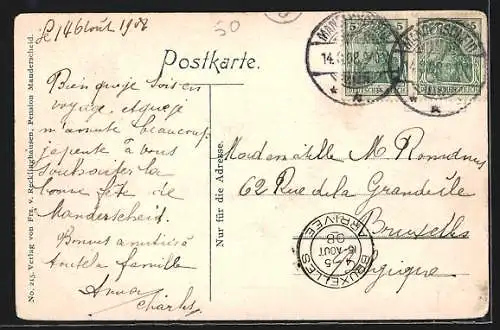 le 14 Août 1908
50
Postkarte.
5 5
MANDERSCHEID MANDERSCHEID
14.8.08
DEUTSCHES REICH
Bien que je sois en
voyage, et que je
m'amuse beaucoup,
je pense à vous
souhaiter la
bonne fête de
Manderscheid.
Bonnes amitiés à
toute la famille
Anna
Charles
No. 215. Verlag von Frz. v. Recklinghausen, Pension Manderscheid.
Nur für die Adresse.
Mademoiselle M.
62 Rue de la
Bruxelles
Belgique
BRUXELLES
4-5
15-AOUT
08
ARRIVEE